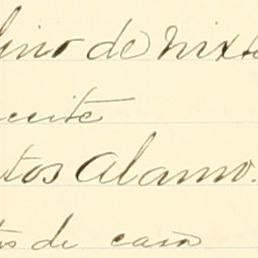 lino de nixte
aceite
tos Alamo.
tos de casa